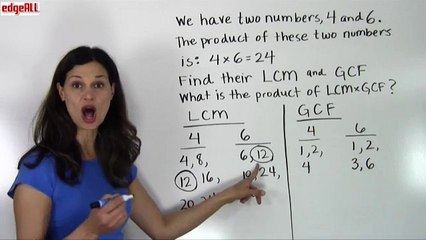 edgeALL
We have two numbers, 4 and 6.
The product of these two numbers
is: 4 × 6 = 24
Find their LCM and GCF
What is the product of LCM×GCF?
LCM GCF
4 6 4 6
4, 8, 6 12 1, 2, 1, 2,
12 16, 24, 4 3, 6